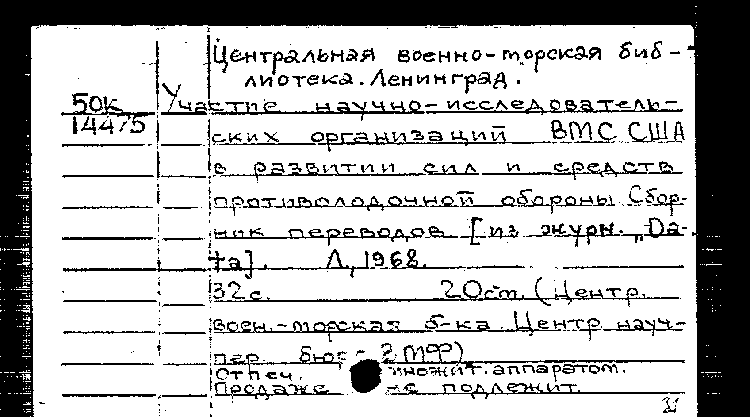 Центральная военно-морская биб-
лиотека. Ленинград.
50к
14475
Участие научно-исследователь-
ских организаций ВМС США
в развитии сил и средств
противолодочной обороны Сбор-
ник переводов [из журн. „Da-
ta]. Л., 1968.
32 с. 20 см. (Центр.
воен.-морская б-ка Центр науч-
пер бюро
Отпеч. множит. аппаратом.
Продаже не подлежит.